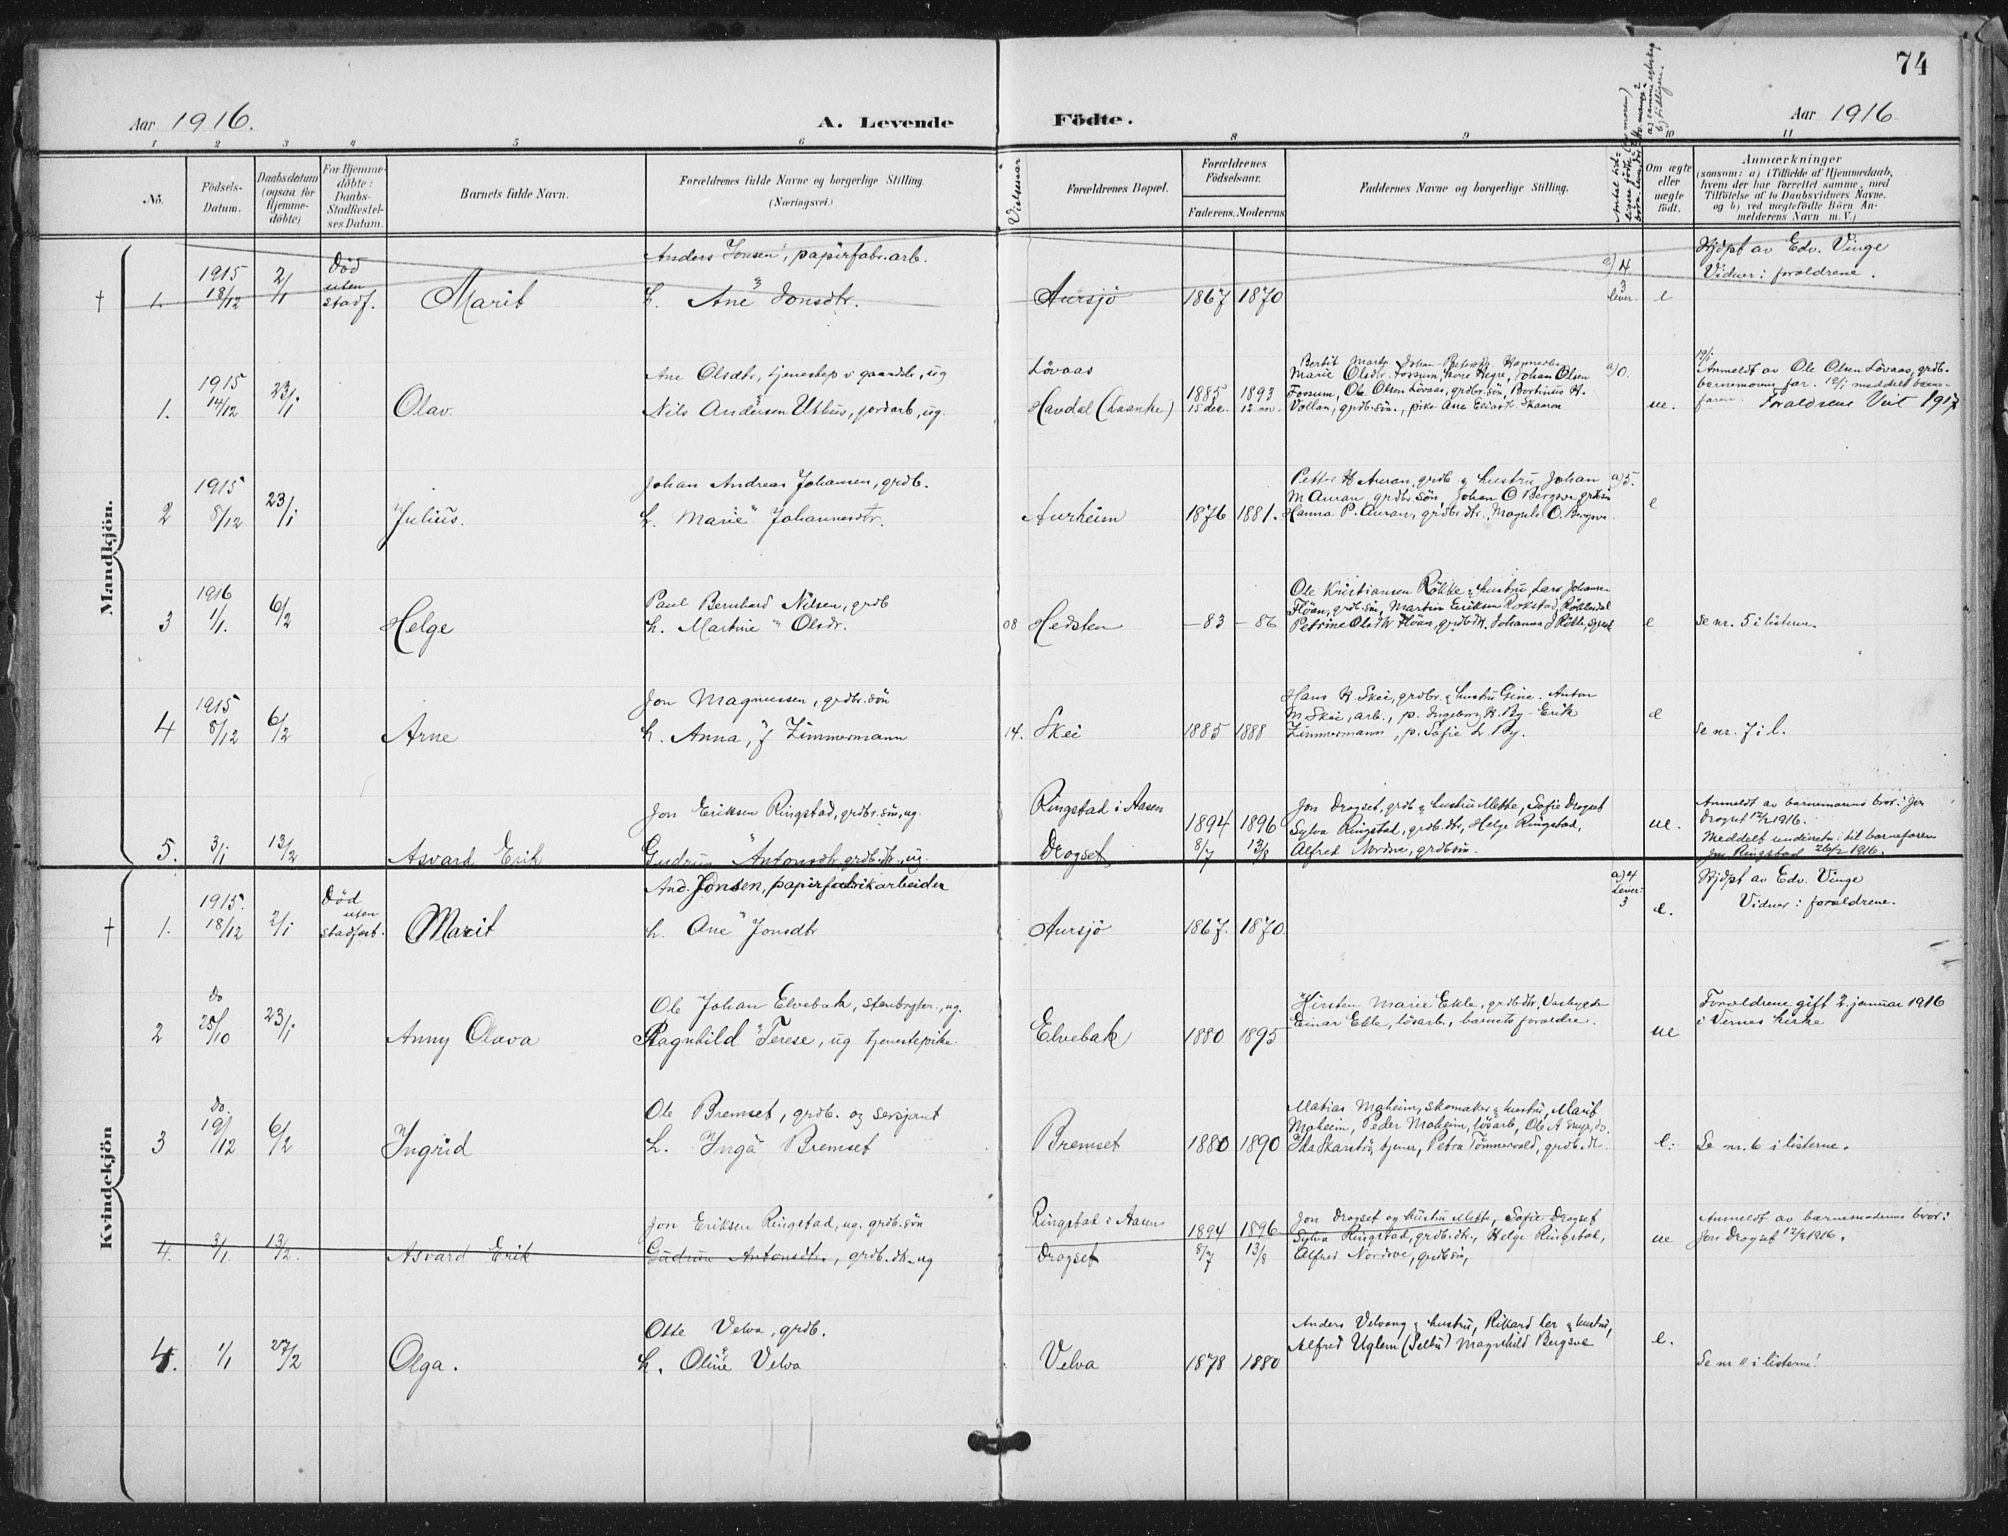 74
Aar 1916.
A. Levende Födte.
Aar 1916
1 2 3 4 5 6 8 9 10 11
No.
Födsels-Datum.
Daabsdatum (ogsaa for Hjemmedöbte)
For Hjemmedöbte: Daabs-Stadfæstelses Datum.
Barnets fulde Navn.
Forældrenes fulde Navne og borgerlige Stilling.
(Næringsvei.)
Vielsesaar
Forældrenes Bopæl.
Forældrenes Födselsaar.
Faderens. Moderens
Faddernes Navne og borgerlige Stilling.
Om ægte eller uægte födt.
Anmærkninger
(saasom: a) i Tilfælde af Hjemmedaab,
hvem der har forrettet samme, med
Tilföielse af to Daabsvidners Navne.
og b) ved uægtefödte Börn Anmelderens Navn m. V.)
Mandkjön.
† 1. 1915 18/12 2/1 Död uten stadf. Marit
Anders Jonsen, papirfabr.arb.
h. Ane Jonsdtr.
Aursjö 1867 1870
a) 4 3 lever. e
Hjdpt av Edv. Vinge
Vidner: forældrene.
1. 1915 14/12 23/1 Olav
Ane Olsdtr, tjenestep v gaardsbr, ug
Nils Andersen Uthus, jordarb, ug.
Lövaas
Havdal (Laanke)
1885 15 des. 1893 12 nov.
Fossum, Ole Olsen Lövaas, grdbr.sön,
a) 0. ue.
Anmeldt av Ole Olsen Lövaas, grdb.
barnemorens far. 19/1 meddelt barnefaren. Forældrene Viet 1917
2 1915 8/12 23/1 Julius.
Johan Andreas Johansen, grdb.
h. Marie Johannesdtr.
Aurheim 1876 1881.
Petter H Auran, grdb & hustru Johan
M Auran, grdbr.sön, Johan O Bergsve grdsön
Hanna P. Auran, grdbr.dtr, Magnhl. O. Bergsve
a) 5. e
3 1916 1/1. 6/2 Helge
Paul Bernhard Nilsen, grdb
h. Martine Olsdr.
08 Hedsten -83 -86
Ole Kristiansen Rökke & hustru Lars Johansen
Flöan, grdb.sön, Martin Eriksen Rokstad,
Petrine Olsdtr Flöan, grdb.dtr. Johanna J Rökke,
e Se nr. 5 i listeren.
4 1915 8/12 6/2 Arne
Jon Magnussen, grdbr.sön
h. Anna, f Zimmermann
14. Skei 1885 1888
Hans H. Skei, grdbr. & hustru Gine. Anton
M Skei, arb., p. Ingeborg H. By - Erik
Zimmermann, p. Sofie L. By.
e Se nr. 7 i l.
5. 3/1 13/2 Asvard Erik
Jon Eriksen Ringstad, grdbr.sön, ug.
Gudrun Antonsdtr grdb.dtr., ug.
Ringstad i Aasen
Drogset
1894 8/7 1896 13/8
Jon Drogset, grdb & hustru Mette, Sofie Drogset
Sylva Ringstad, grdb.dtr, Helge Ringstad,
Alfred Nordsve, grdbsön.
ue.
Anmeldt av barnemorens bror: Jon
Drogset 12/2 1916.
Meddelt underrets: til barnefaren
Jon Ringstad 26/2 1916.
Kvindekjön
† 1. 1915. 18/12 2/1 Död uten stadfest. Marit
And. Jonsen, papirfabrikarbeider
h. Ane Jonsdtr
Aursjö 1867. 1870.
a) 4 Lever: 3 e.
Hjdpt av Edv. Vinge
Vidner: forældrene.
2 Do 25/10 23/1 Anny Olava
Ole Johan Elvebak, stenbryter, ug.
Ragnhild Terese, ug tjenestepike.
Elvebak 1880 1895
Kirsten Marie Ekle, grdb.dtr.
Einar Ekle, lösarb, barnets forældre.
ue
Forældrene gift 2. januar 1916
i Vernes kirke
3 Do. 19/12 6/2 Ingrid
Ole Bremset, grdb. og sersjant
h. Inga Bremset
Bremset 1880 1890
Matias Moheim, skomaker & hustru, Marit
Moheim, Peder Moheim, lösarb,
Ida Skarstö, tjener, Petra Tömmervold, grdb.dtr.
e. Se nr. 6 i listerne.
4. 3/1. 13/2. Asvard Erik
Jon Eriksen Ringstad, ug. grdb.sön
Gudrun Antonsdtr., grdb.dtr. ug
Ringstad i Aasen
Drogset
1894 8/7 1896 13/8
Jon Drogset og hustru Mette, Sofie Drogset
Sylva Ringstad, grdb.dtr., Helge Ringstad,
Alfred Nordsve, grdbsön,
ue
Anmeldt av barnemoderens bror:
Jon Drogset 12/2 1916.
4. 1/1 27/2 Olga.
Otte Velva, grdb.
h. Oline Velva
Velva 1878 1880
Anders Velvang & hustru, Rikard Ler & hustru,
Alfred Uglem (Selbu) Magnhild Bergsve
e. Se nr 11 i listerne!